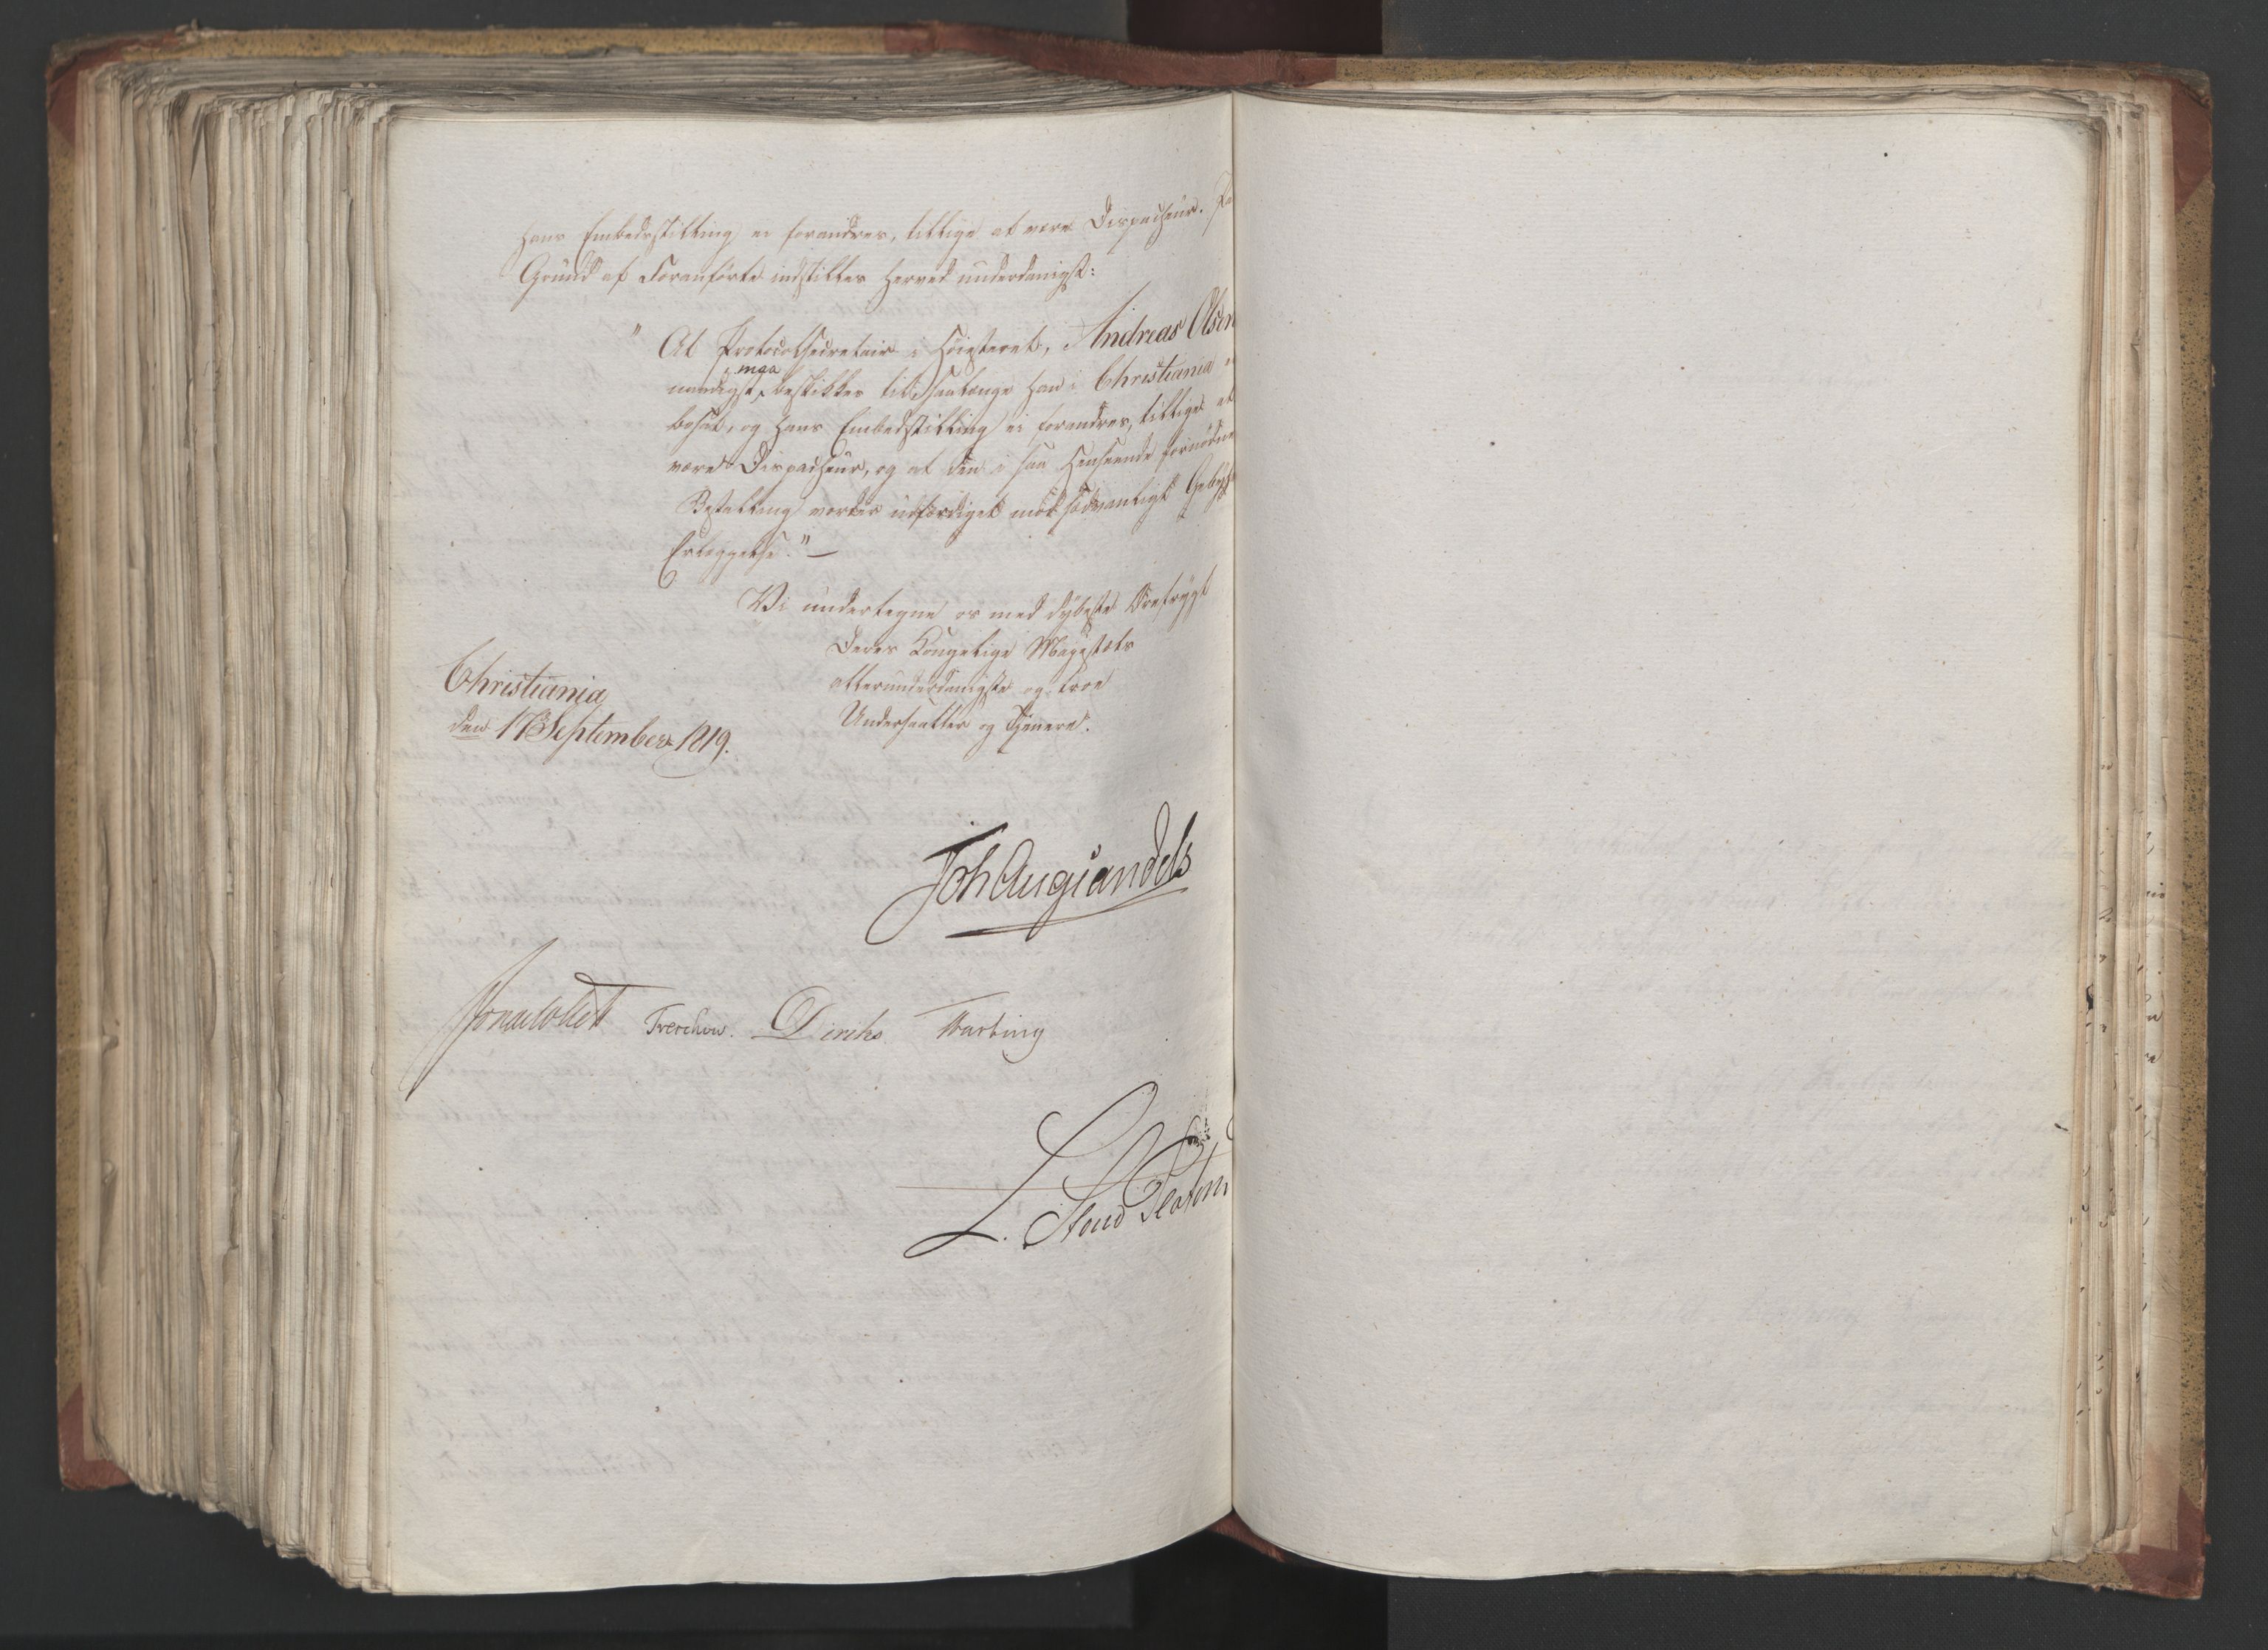 hans Embedsstilling ei forandres, tillige at være Dispacheur. Paa
Grund af Foranförte indstilles herved underdanigst:
" At Protocolsecretair i Höiesteret, Andreas Olsen
naadigst maa beskikkes til, saalænge han i Christiania er
bosat, og hans Embedsstilling ei forandres, tillige at
være Dispacheur, og at den i saa Henseende fornödne
Bestalling vorder udfærdiget mod sædvanligt Gebyhrs
Erlæggelse." —
Vi undertegne os med dybeste Ærefrygt
Deres Kongelige Majestæts
allerunderdanigste og troe
Undersaatter og Tjenere.
Christiania
den 17 September 1819.
Joh Aug Sandels
Jonas Collett Treschow. Diriks Wasting
L. Stoud Platou